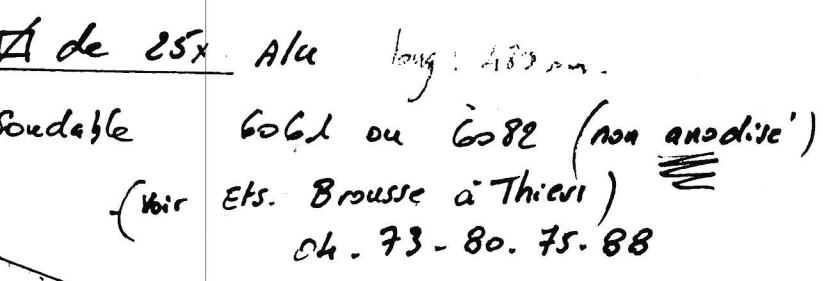 de 25x Alu long :
Soudable 6061 ou 6082 (non anodisé)
(Voir Ets. Brousse à Thiers)
04.73-80.75.88